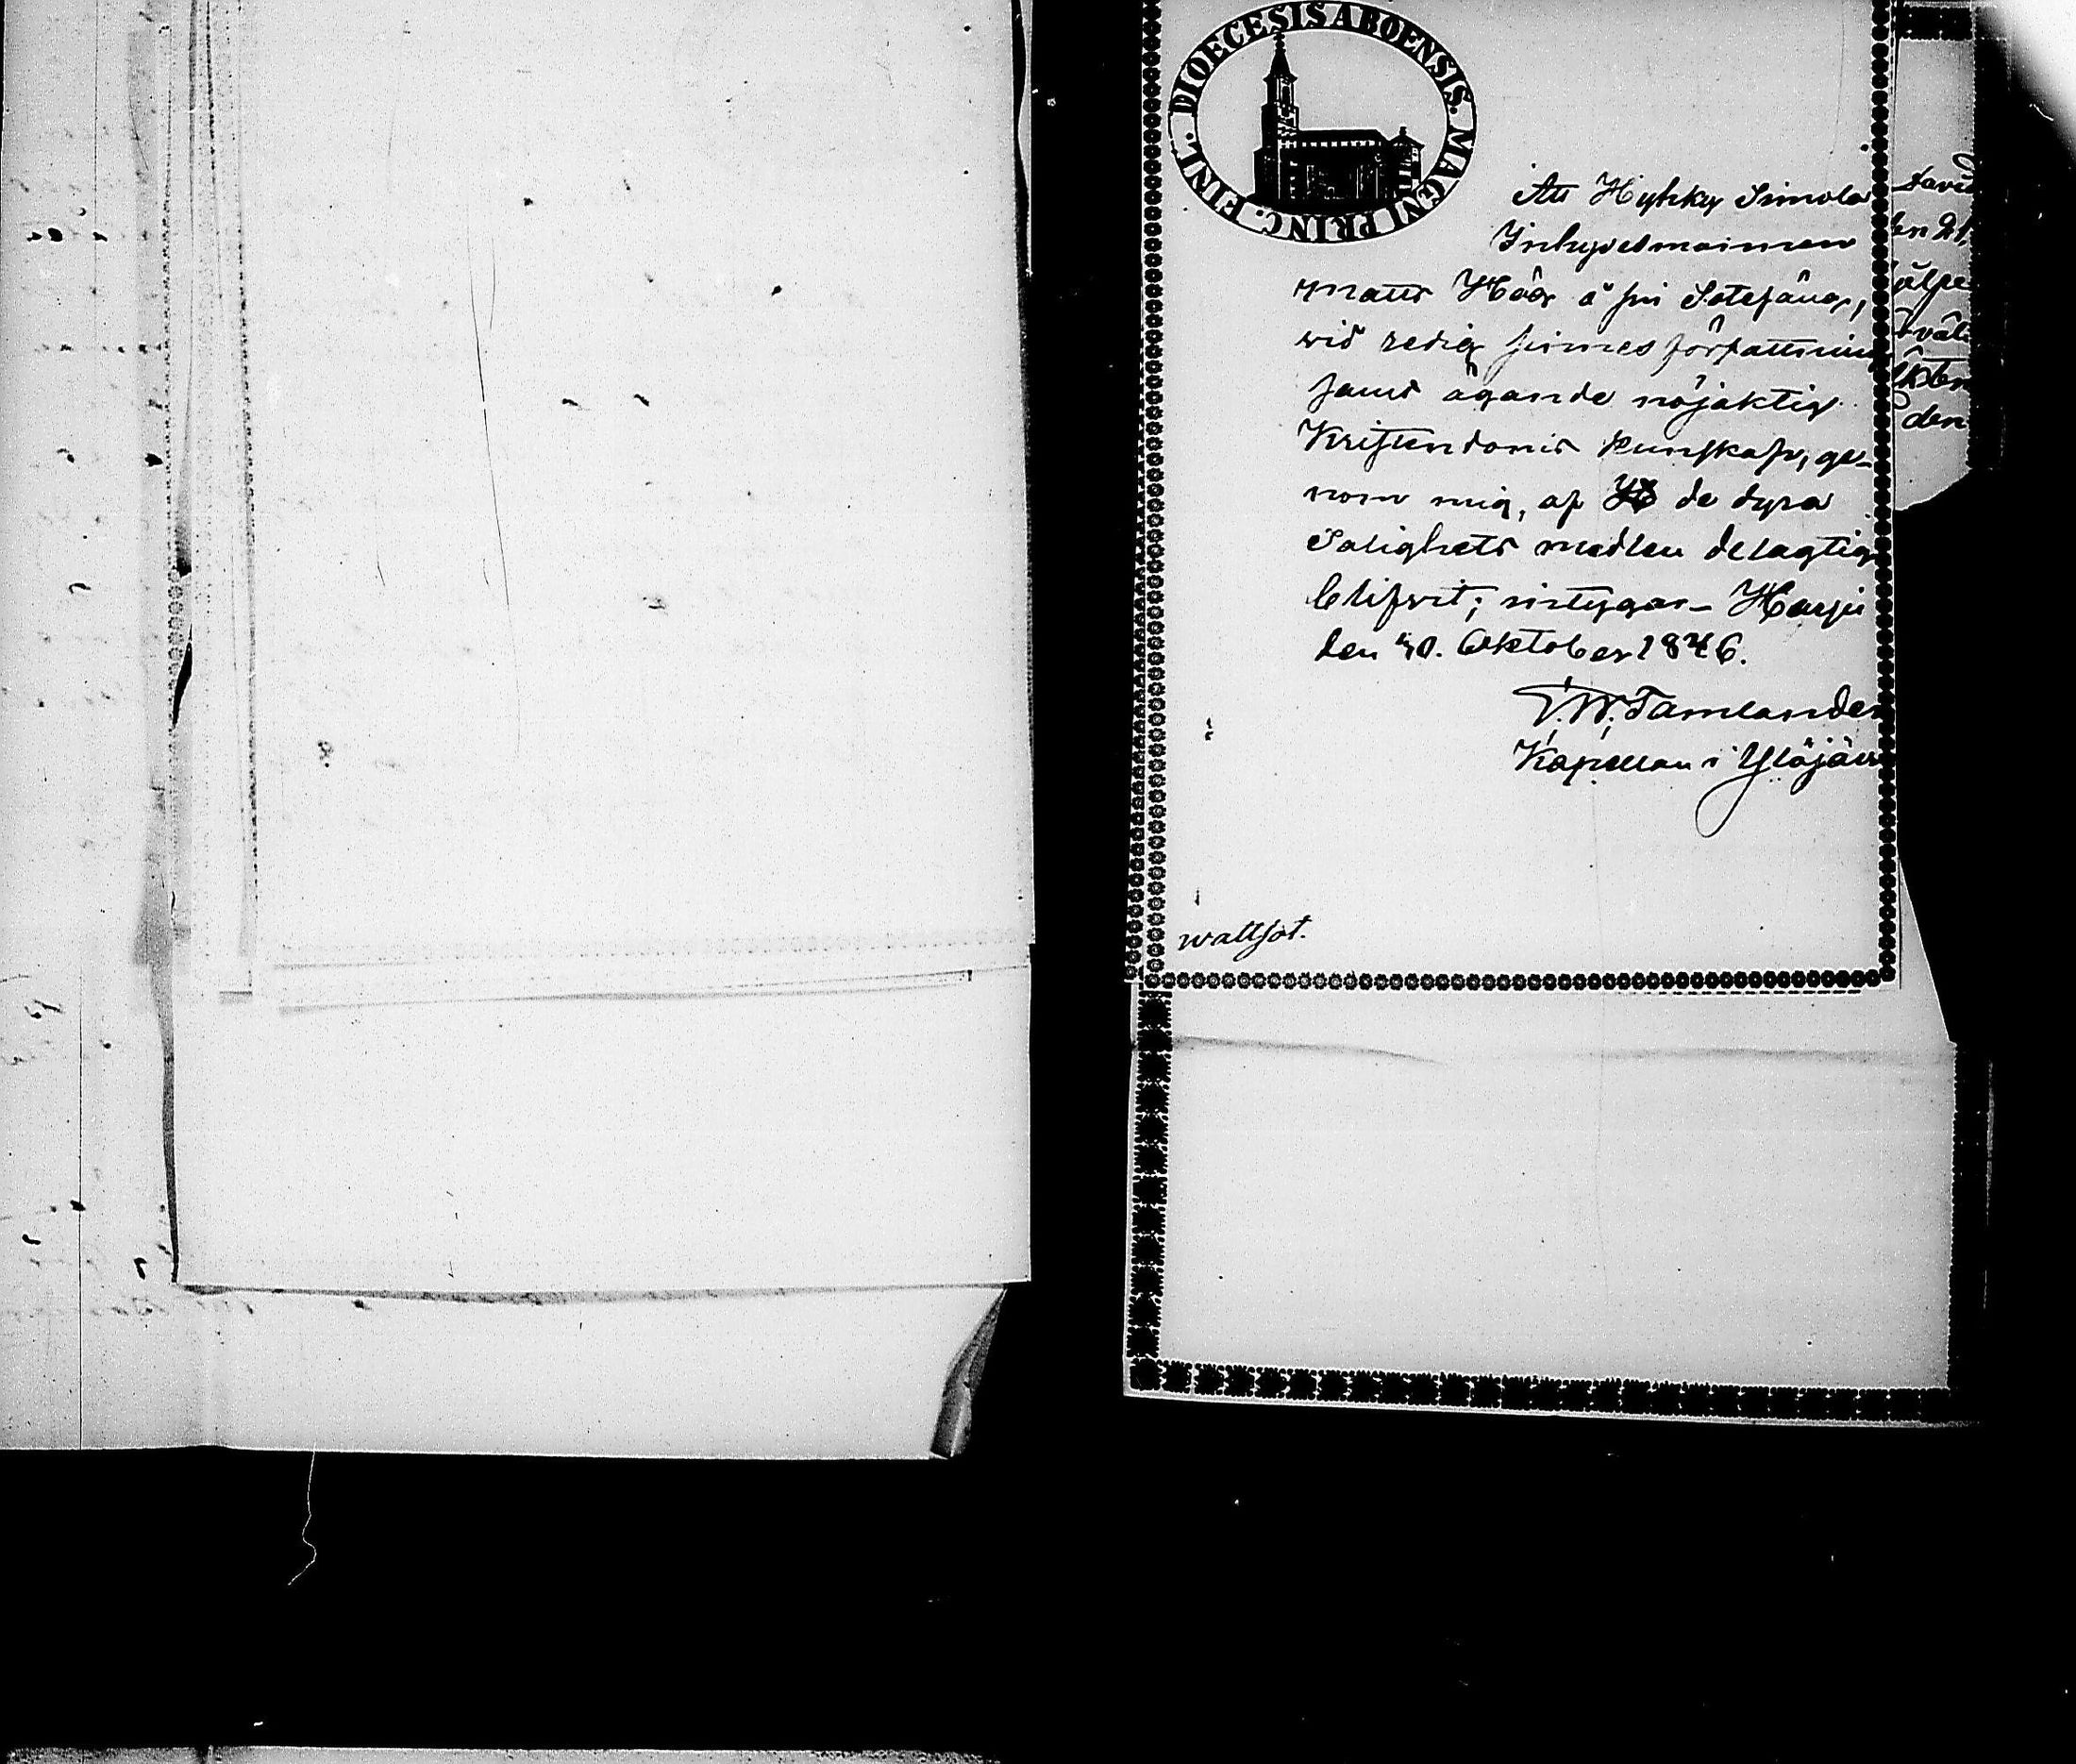 DIOECESIS ABOENSIS. MAGNI PRINC. FINL.
Att Hyhky Simola
Inhysesmannen
Matts Höök å sin Sotesäng,
wid redig sinnesförfattning
samt ägande nöjaktig
Kristendoms kunskap, ge-
nom mig, af de dyra
Salighets medlen delagtig
blifvit; intygar. Harju
den 30. Oktober 1846.
F.W. Tamlander
Kapellan i Ylöjärvi
wattsot.
David
den 21,
den